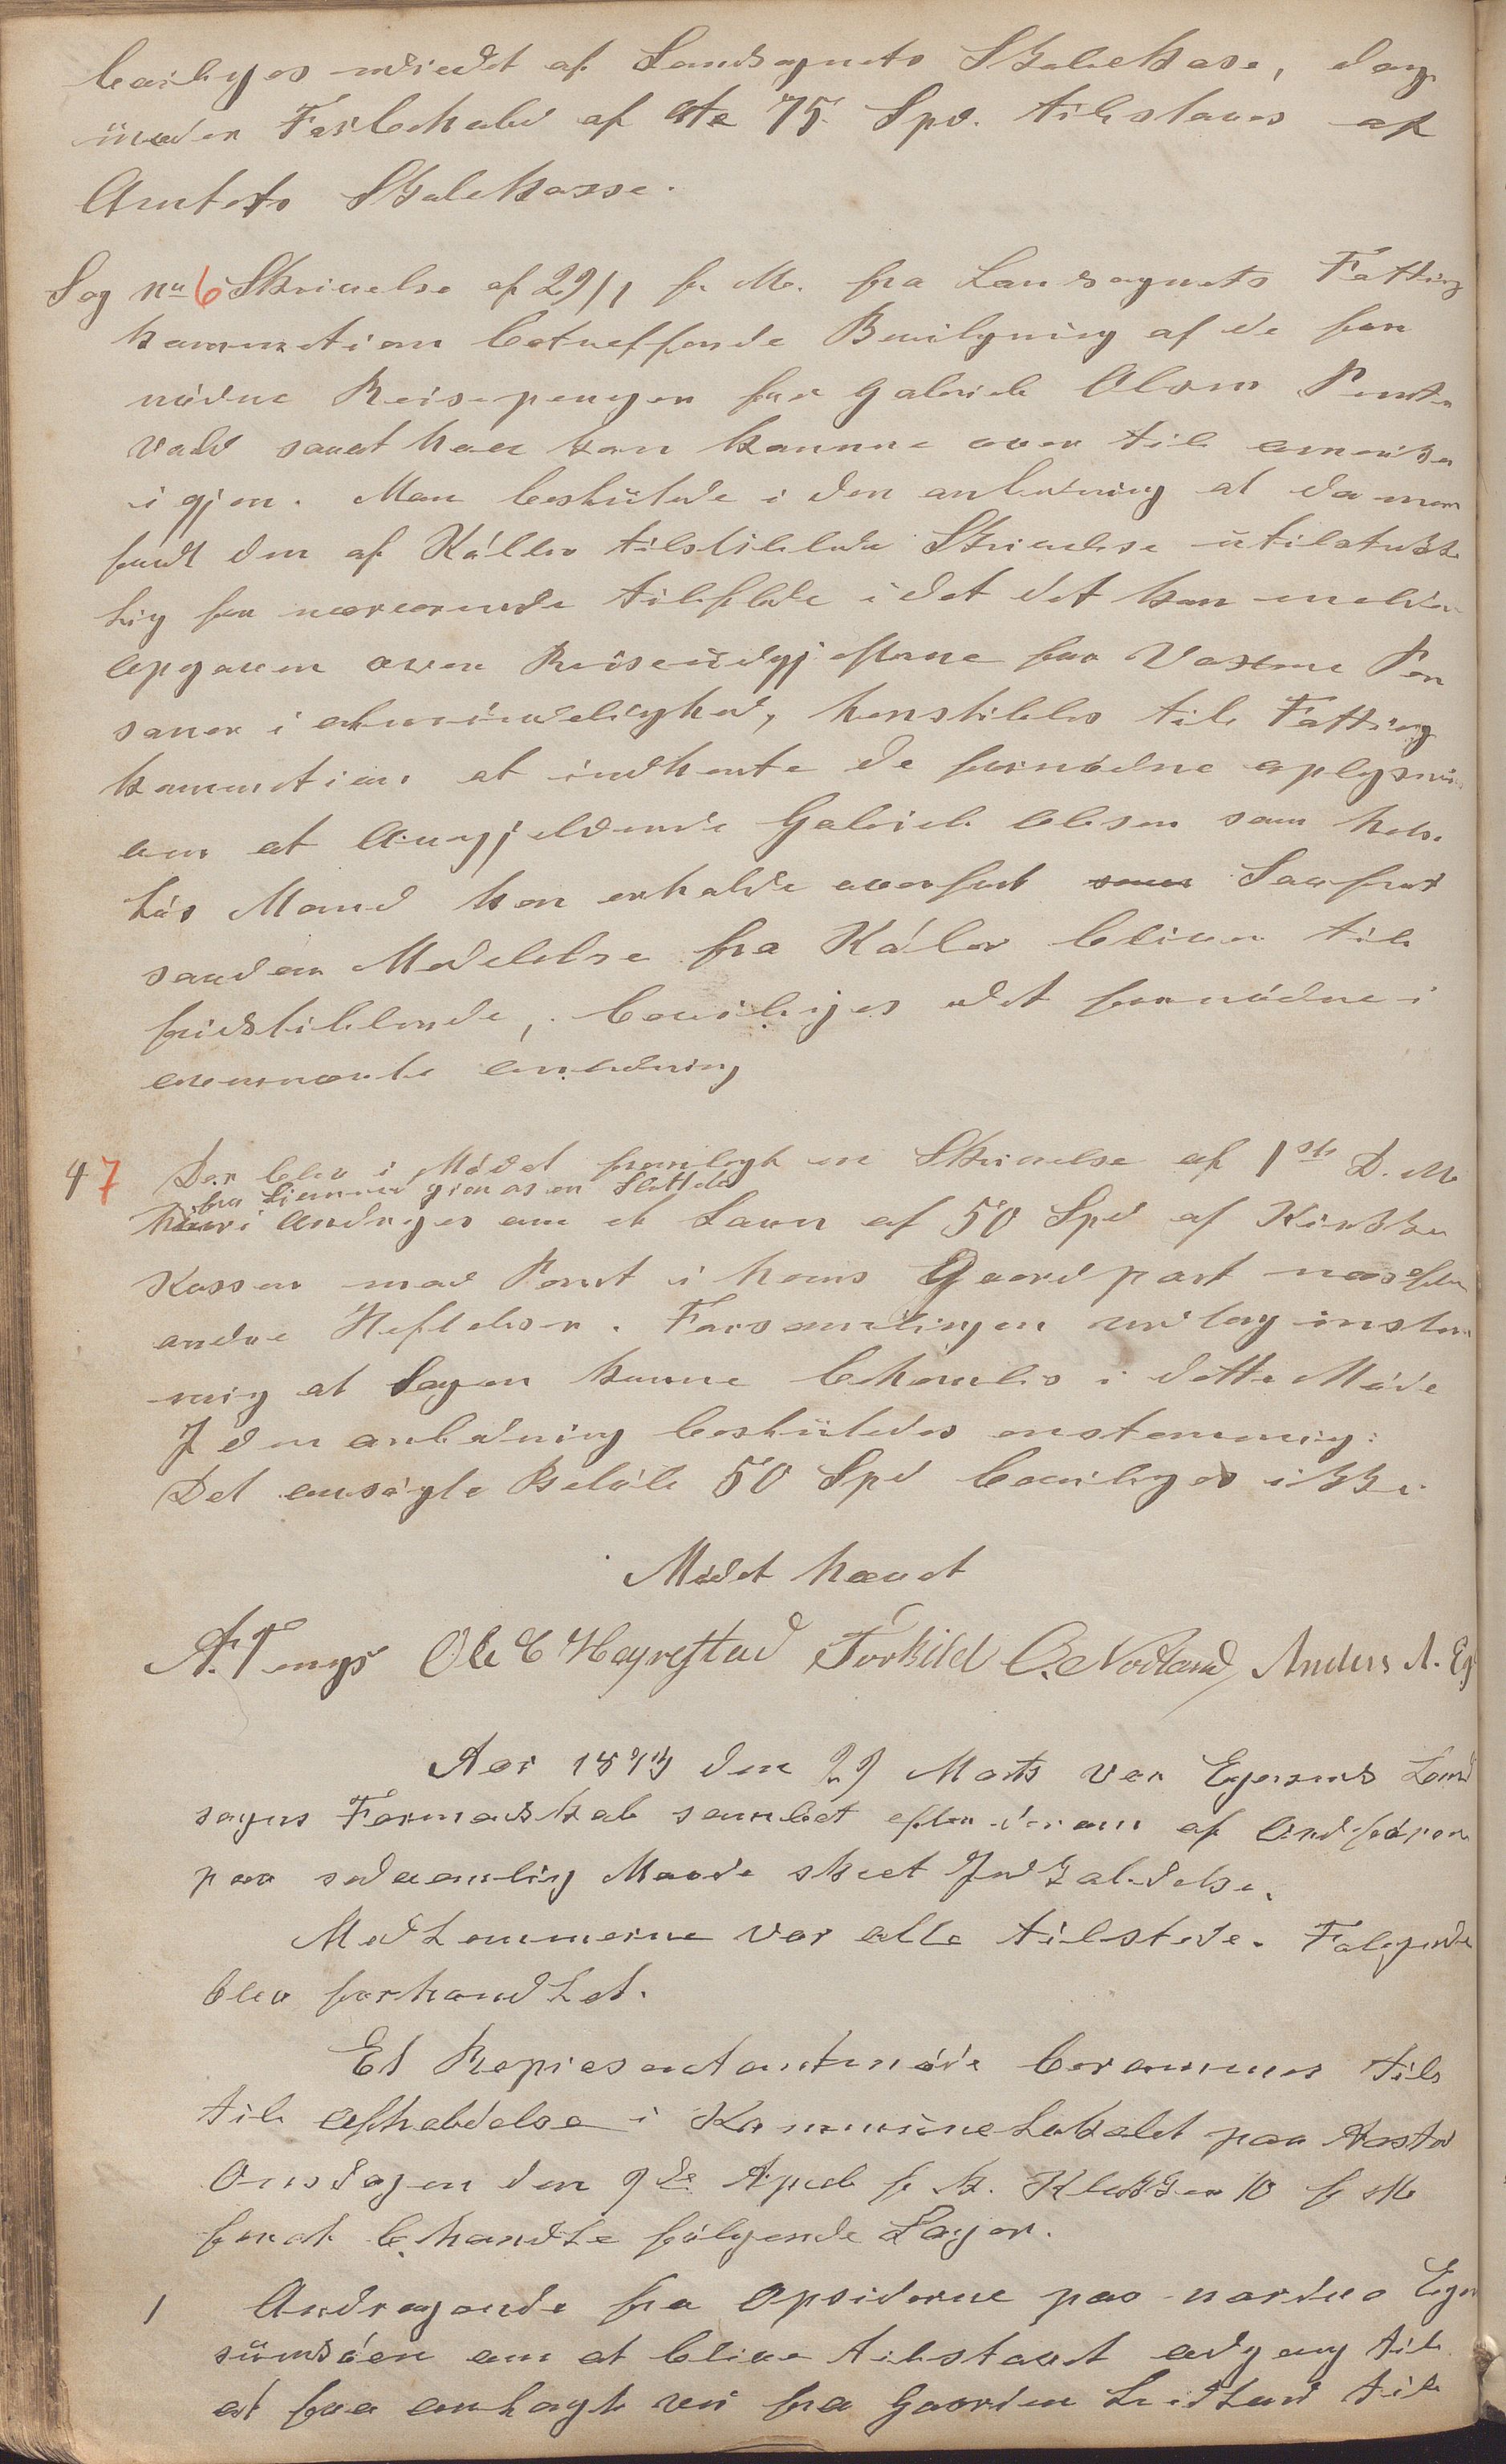 bevilges udredet af Landsognets Skolekase, dog
under Forbehold af at 75 Spd. tilstaaes af
Amtets Skolekasse.
Sag No 6 Skrivelse af 29/1 f. M. fra Landsognets Fattig
kommistion betreffende Bevilgning af de for
nödne Reisepenger for Gabriel Olsen
saaat han kan komme over til amerika
igjen. Man besluttede i den anledning at da man
fandt den af tilstillede Skrivelse utilstrekke
lig for nærværende tilfælde i det det kun melder
opgaven over Reiseudgifterne for Voxene Per
soner i almindelighed, henstilles til Fattig
kommistion at indhente de fornödne oplysnin
om at Angjeldende Gabriel Olsen som
lös Mand kan erholde overfart Saafremt
saadan Medelelse fra blever til
fridstillende, bevilges det fornödne i
ovennævnte anledning
47 Der blev i Mödet fremlagt en Skrivelse af 1ste D. M.
fra
hvori Andrages om et Laan af 50 Spd af Kirkke
Kassen mod Pant i hans Gaardpart næstefter
andre Heftelser. Forsamlingen vedtog enstem
mig at Sagen kunne behandles i dette Möde
I den anledning besluttedes enstemmig:
Det ansögte Belöb 50 Spd bevilges ikke.
Mödet hævet
A. Tengs Ole E Hæyrestad Torkild O. Nodland Anders A. Eg
Aar 1873 den 29 Marts var Egersunds Land
sogns Formandskab samlet efter derom af Ordföreren
paa sedvanlig Maade skeet Indkaldelse.
Medlemmerne var alle tilstede. Fölgende
blev forhandlet.
Et Representantmöde berammes til
til Afholdelse i Kommunelokalet paa
Onsdagen den 9de April f. k. Klokken 10 f M
for at behandle fölgende Sager.
1 Andragende fra Opsiderne paa nordre Eger
sundsöen om at blive tilstaaet adgang til
at faa anlagt vei fra Gaarden til